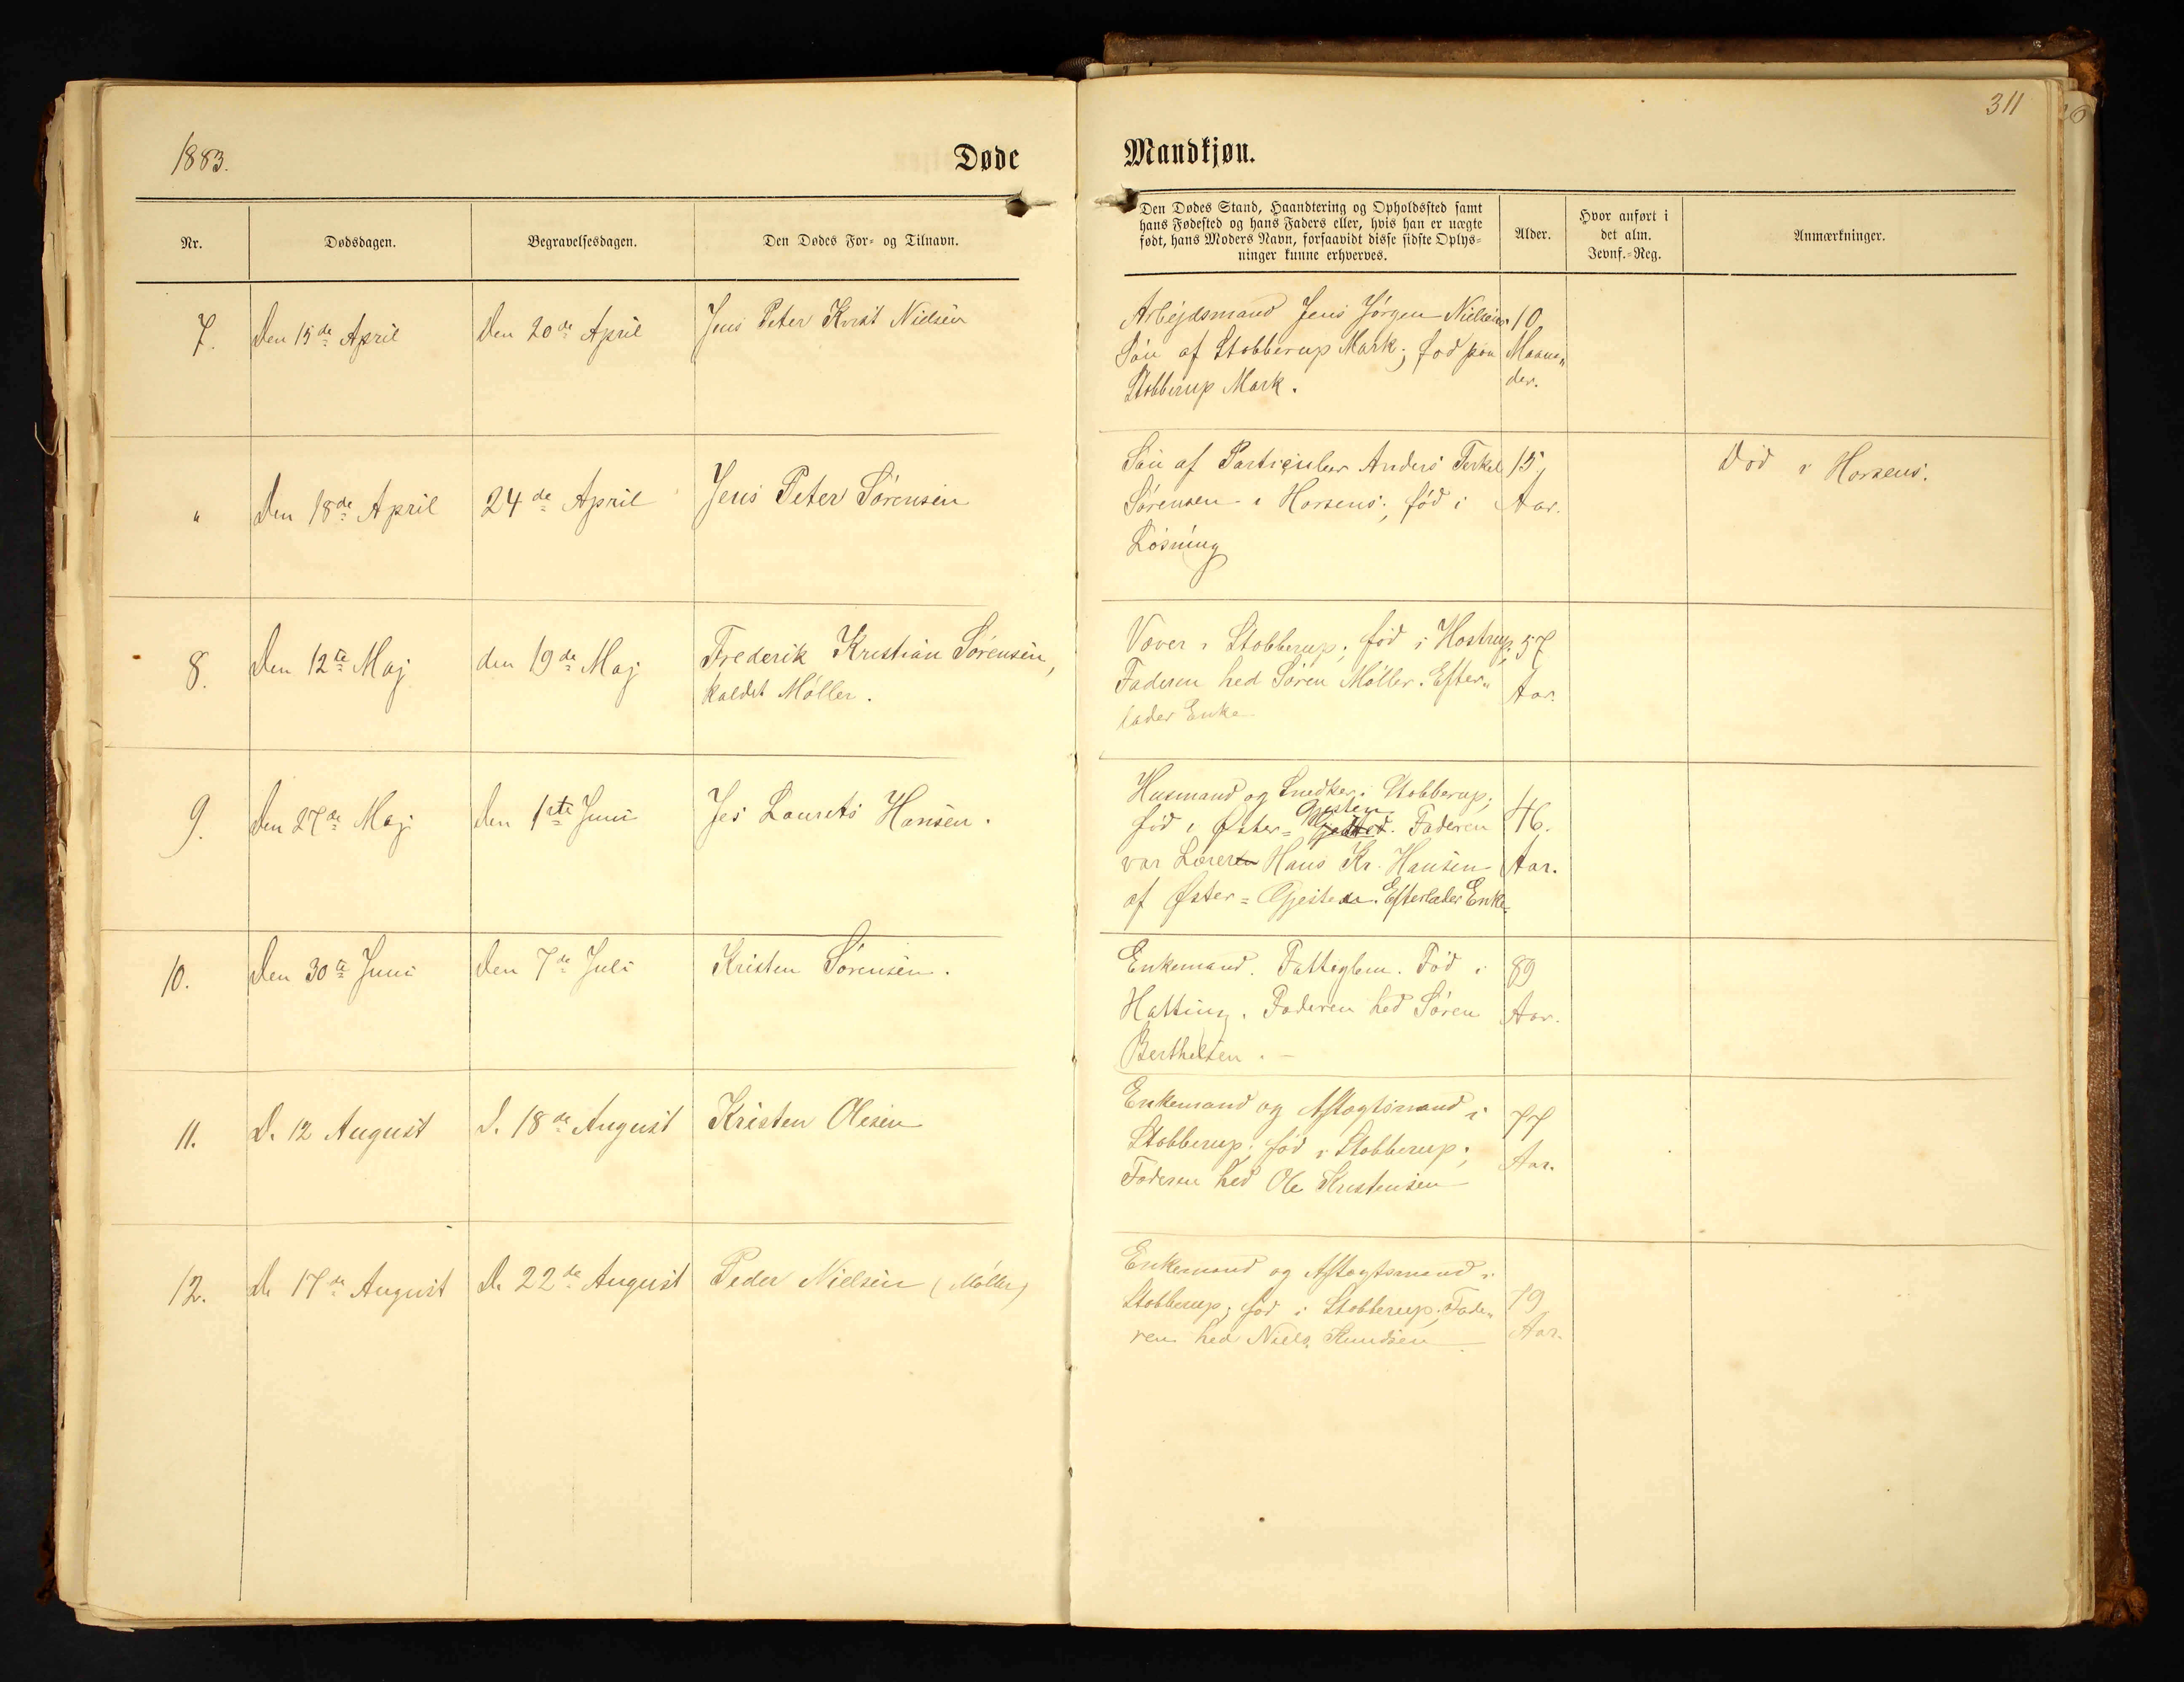 311
1883.
Døde
Mandkjøn.
Nr.
Dødsdagen.
Begravelsesdagen.
Den Dødes For- og Tilnavn.
Den Dødes Stand, Haandtering og Opholdssted samt
hans Fødested og hans Faders eller, hvis han er uægte
født, hans Moders Navn, forsaavidt disse sidste Oplys-
ninger kunne erhverves.
Alder.
Hvor anført i
det alm.
Jevnf.-Reg.
Anmærkninger.
7.
Den 15de April
Den 20de April
Jens Peter Krist Nielsen
Arbejdsmand Jens Jørgen Nielsens
Søn af Stobberup Mark; fød paa
Stobberup Mark.
10
Maane„
der.
"
Den 18de April
24de April
Jens Peter Sørensen
Søn af Particulier Anders Terkel
Sørensen i Horsens; fød i
Løsning
15
Aar.
Død i Horsens.
8.
Den 12te Maj
den 19de Maj
Frederik Kristian Sørensen,
kaldet Møller.
Væver i Stobberup; fød i Hostrup.
Faderen hed Søren Møller. Efter„
lader Enke
57
Aar.
9.
Den 27de Maj
Den 1ste Juni
Jes Laurits Hansen.
Husmand og Snedker i Stobberup;
Gjesten
fød i Øster= Faderen
var Lærer Hans Kr. Hansen
af Øster=Gjesten. Efterlader Enke.
46.
Aar.
10.
Den 30te Juni
Den 7de Juli
Kristen Sørensen.
Enkemand. Fattiglem. Fød i
Hatting. Faderen hed Søren
Berthelsen. –
89
Aar.
11.
D. 12 August
D. 18de August
Kristen Olesen
Enkemand og Aftægtsmand i
Stobberup; fød i Stobberup;
Faderen hed Ole Kristensen
77
Aar.
12.
D. 17de August
D. 22de August
Peder Nielsen (Møller)
Enkemand og Aftægtsmand i
Stobberup; fød i Stobberup; Fade„
ren hed Niels Knudsen
79
Aar.